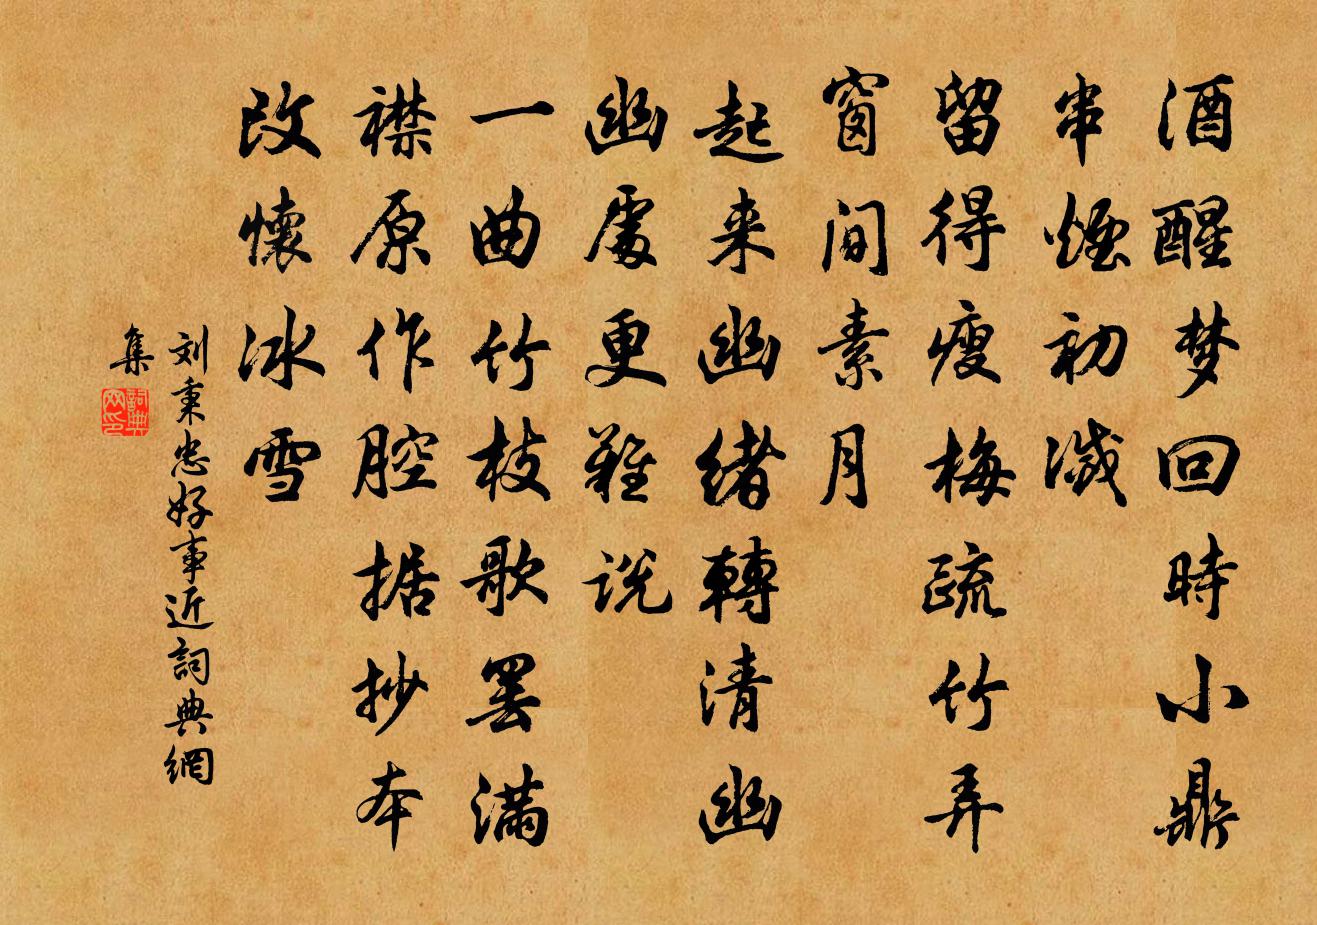 酒醒梦回時小鼎
串煙初滅
留得瘦梅疏竹弄
窗间素月
起来幽緒轉清幽
幽處更難说
一曲竹枝歌罢滿
襟原作腔据抄本
改懷冰雪
刘秉忠好事近詞典網
集
詞典网印